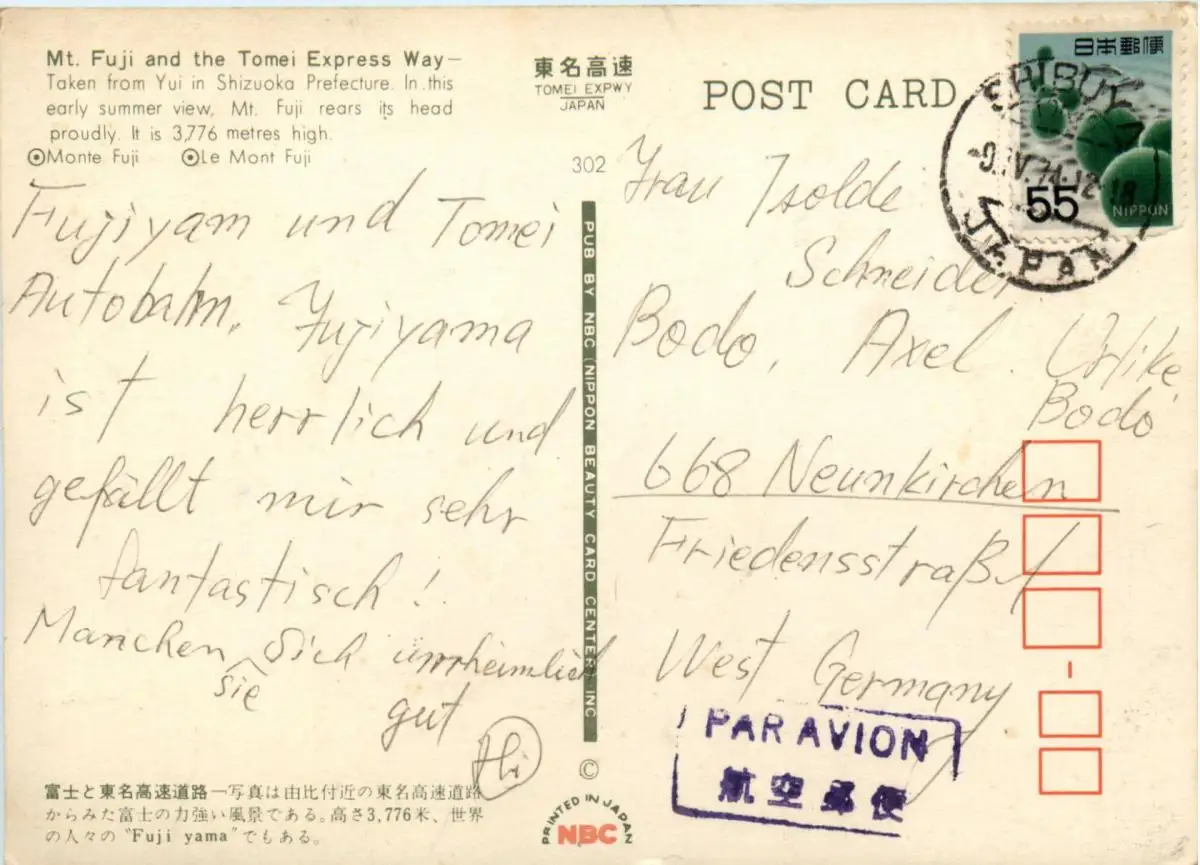 Mt. Fuji and the Tomei Express Way—
Taken from Yui in Shizuoka Prefecture. In this
early summer view, Mt. Fuji rears its head
proudly. It is 3,776 metres high.
Monte Fuji Le Mont Fuji
東名高速
TOMEI EXPWY
JAPAN
POST CARD
302
日本郵便
55
NIPPON
JAPAN
Fujiyam und Tomei
Autobahn. Fujiyama
ist herrlich und
gefällt mir sehr
fantastisch!
Manchen sich
sie
gut
Hi
PUB BY NBC (NIPPON BEAUTY CARD CENTER) INC
©
Frau Isolde
Schneider
Bodo, Axel. Ulrike
Bodo
668 Neunkirchen
Friedensstraße
West Germany
PAR AVION
航空郵便
富士と東名高速道路—写真は由比付近の東名高速道路
からみた富士の力強い風景である。高さ3,776米、世界
の人々の“Fuji yama”でもある。
PRINTED IN JAPAN
NBC